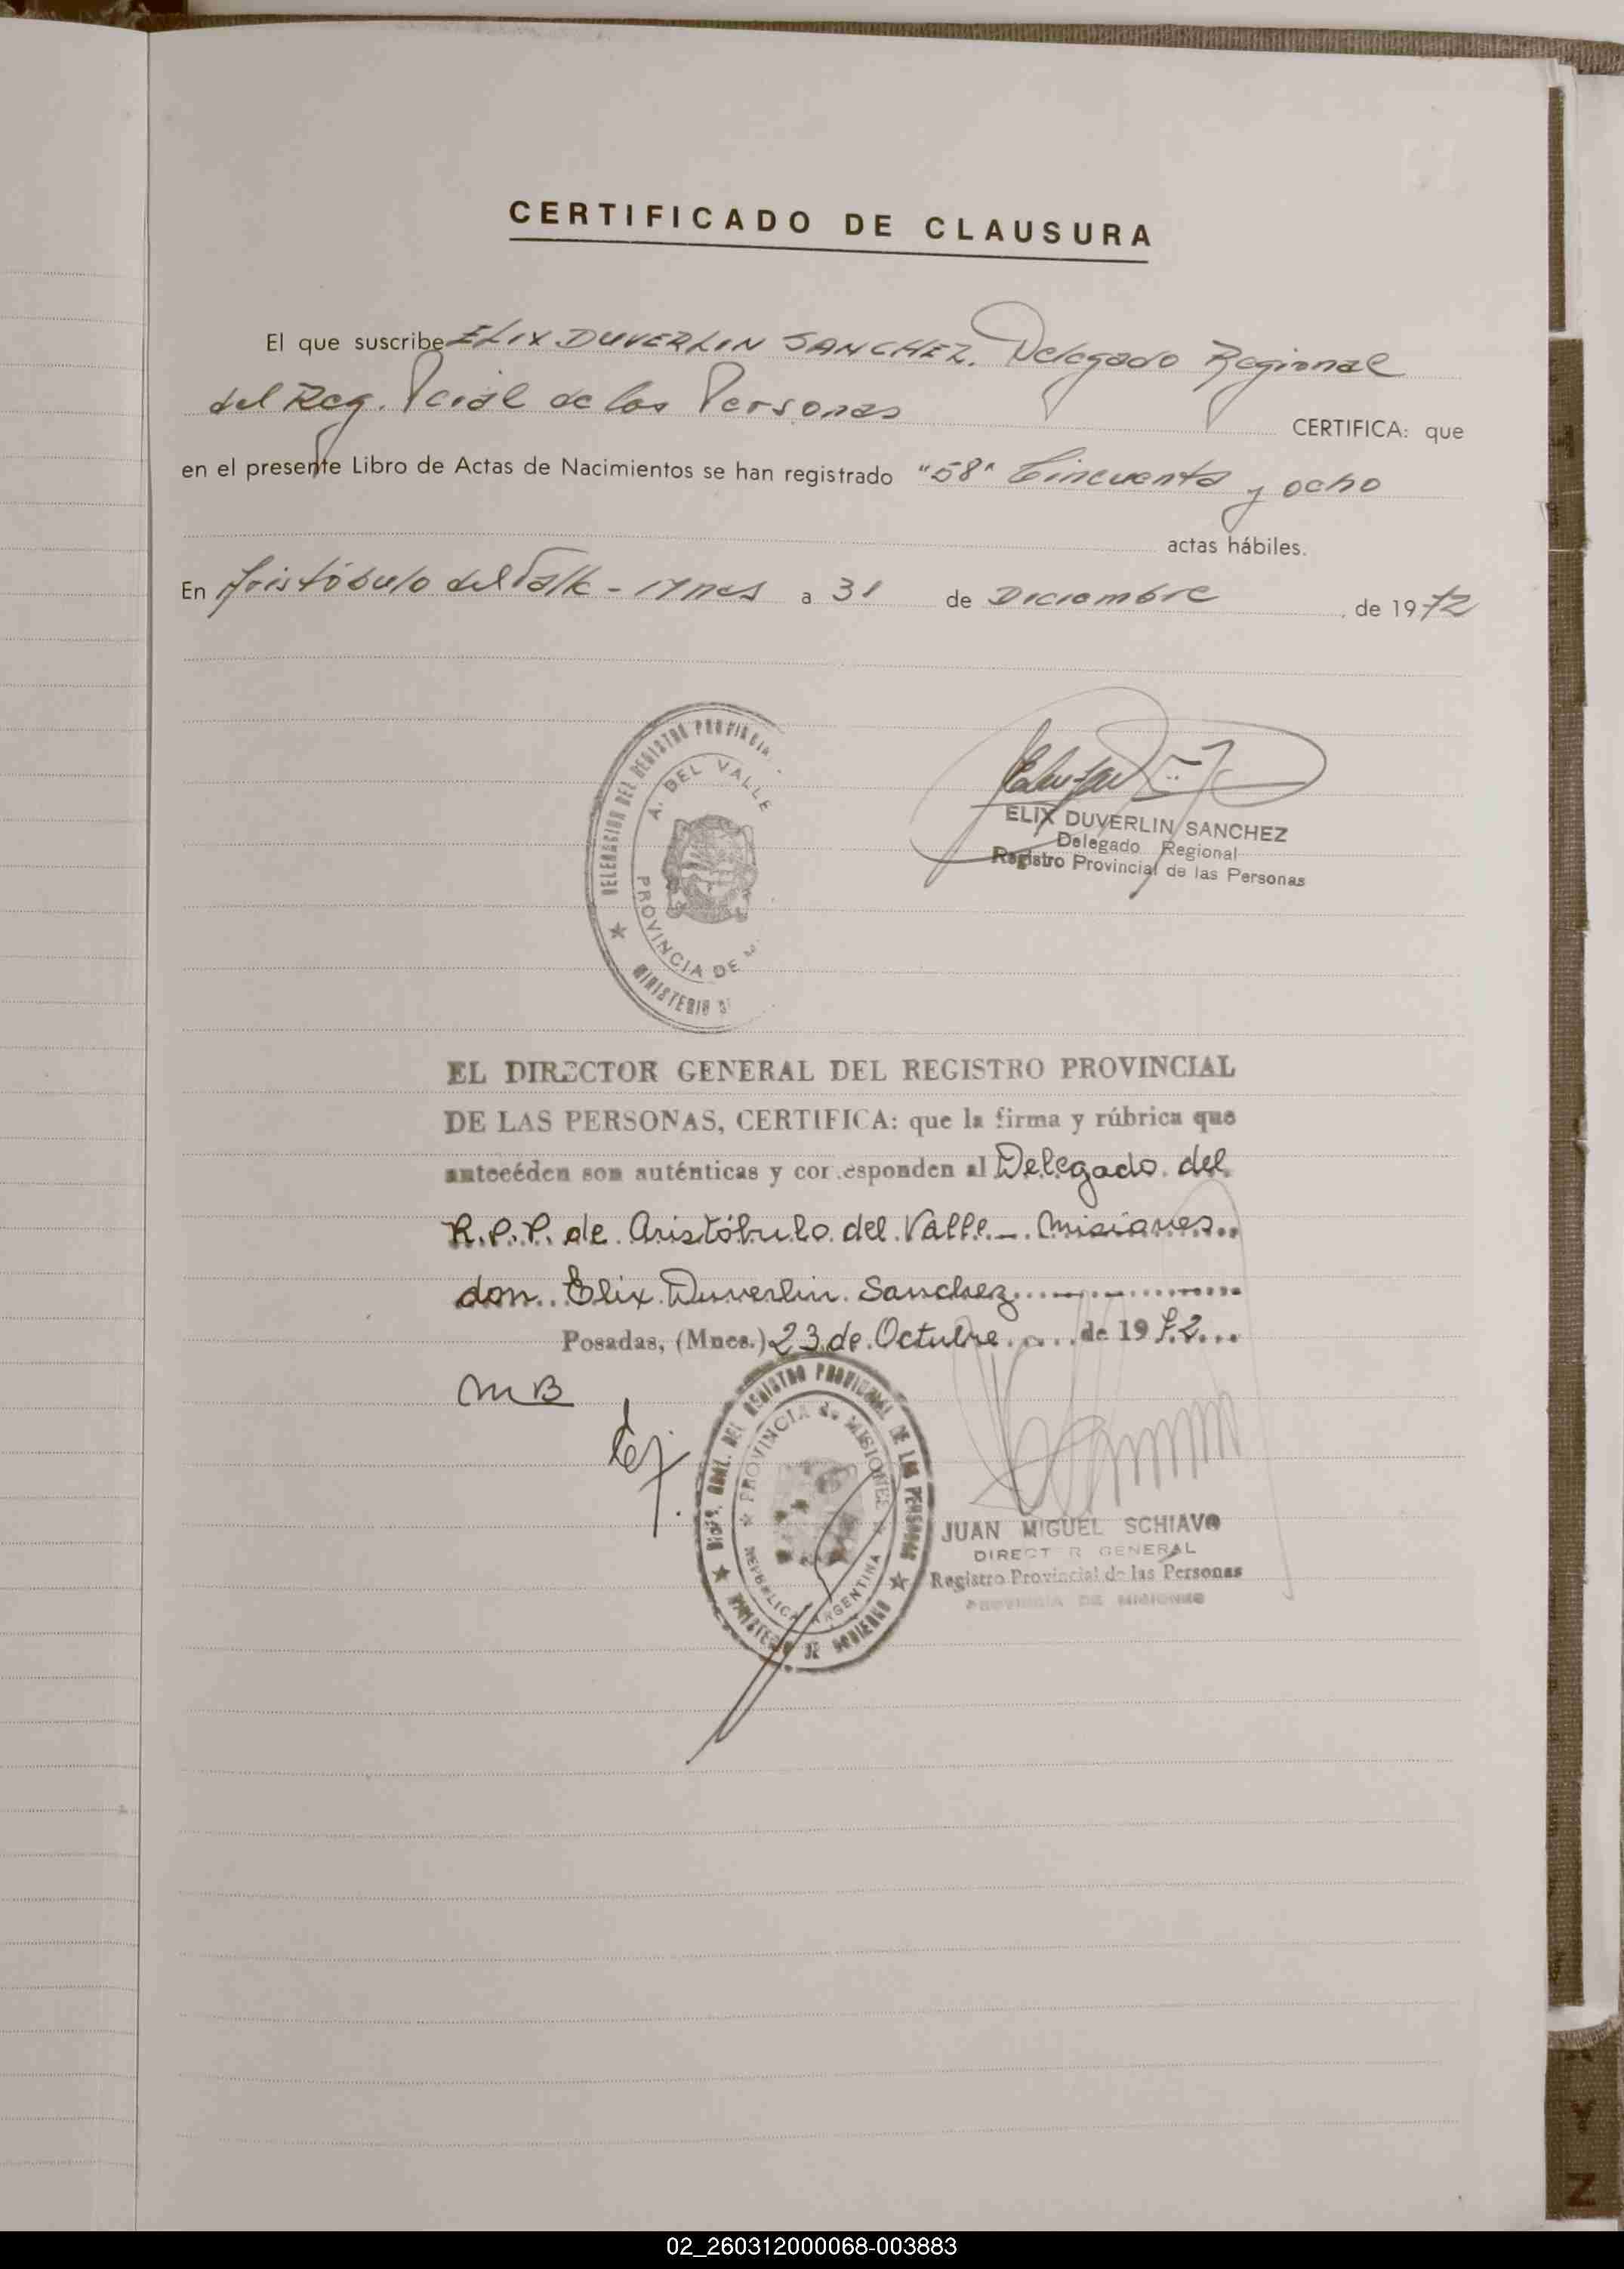 CERTIFICADO DE CLAUSURA
El que suscribe ELIX DUVERLIN SANCHEZ. Delegado Regional
del Reg. Pcial de las Personas
CERTIFICA: que
en el presente Libro de Actas de Nacimientos se han registrado "58" Cincuenta y ocho
actas hábiles.
En Aristóbulo del Valle - Mnes a 31 de Diciembre de 1972
DELEGACION DEL REGISTRO PROVINCIA
A. DEL VALLE
PROVINCIA DE M
MINISTERIO
ELIX DUVERLIN SANCHEZ
Delegado Regional
Registro Provincial de las Personas
EL DIRECTOR GENERAL DEL REGISTRO PROVINCIAL
DE LAS PERSONAS, CERTIFICA: que la firma y rúbrica que
antecéden son auténticas y corresponden al Delegado del
R.P.P. de Aristóbulo del Valle - Misiones
don Elix Duverlin Sanchez
Posadas, (Mnes.) 23 de Octubre de 19
MB
GRAL. DEL REGISTRO PROVINCIAL DE LAS PERSONAS
PROVINCIA de MISIONES
REPUBLICA ARGENTINA
MINISTERIO DE GOBIERNO
JUAN MIGUEL SCHIAVO
DIRECT R GENERAL
Registro Provincial de las Personas
PROVINCIA DE MISIONES
Y
Z
02_260312000068-003883